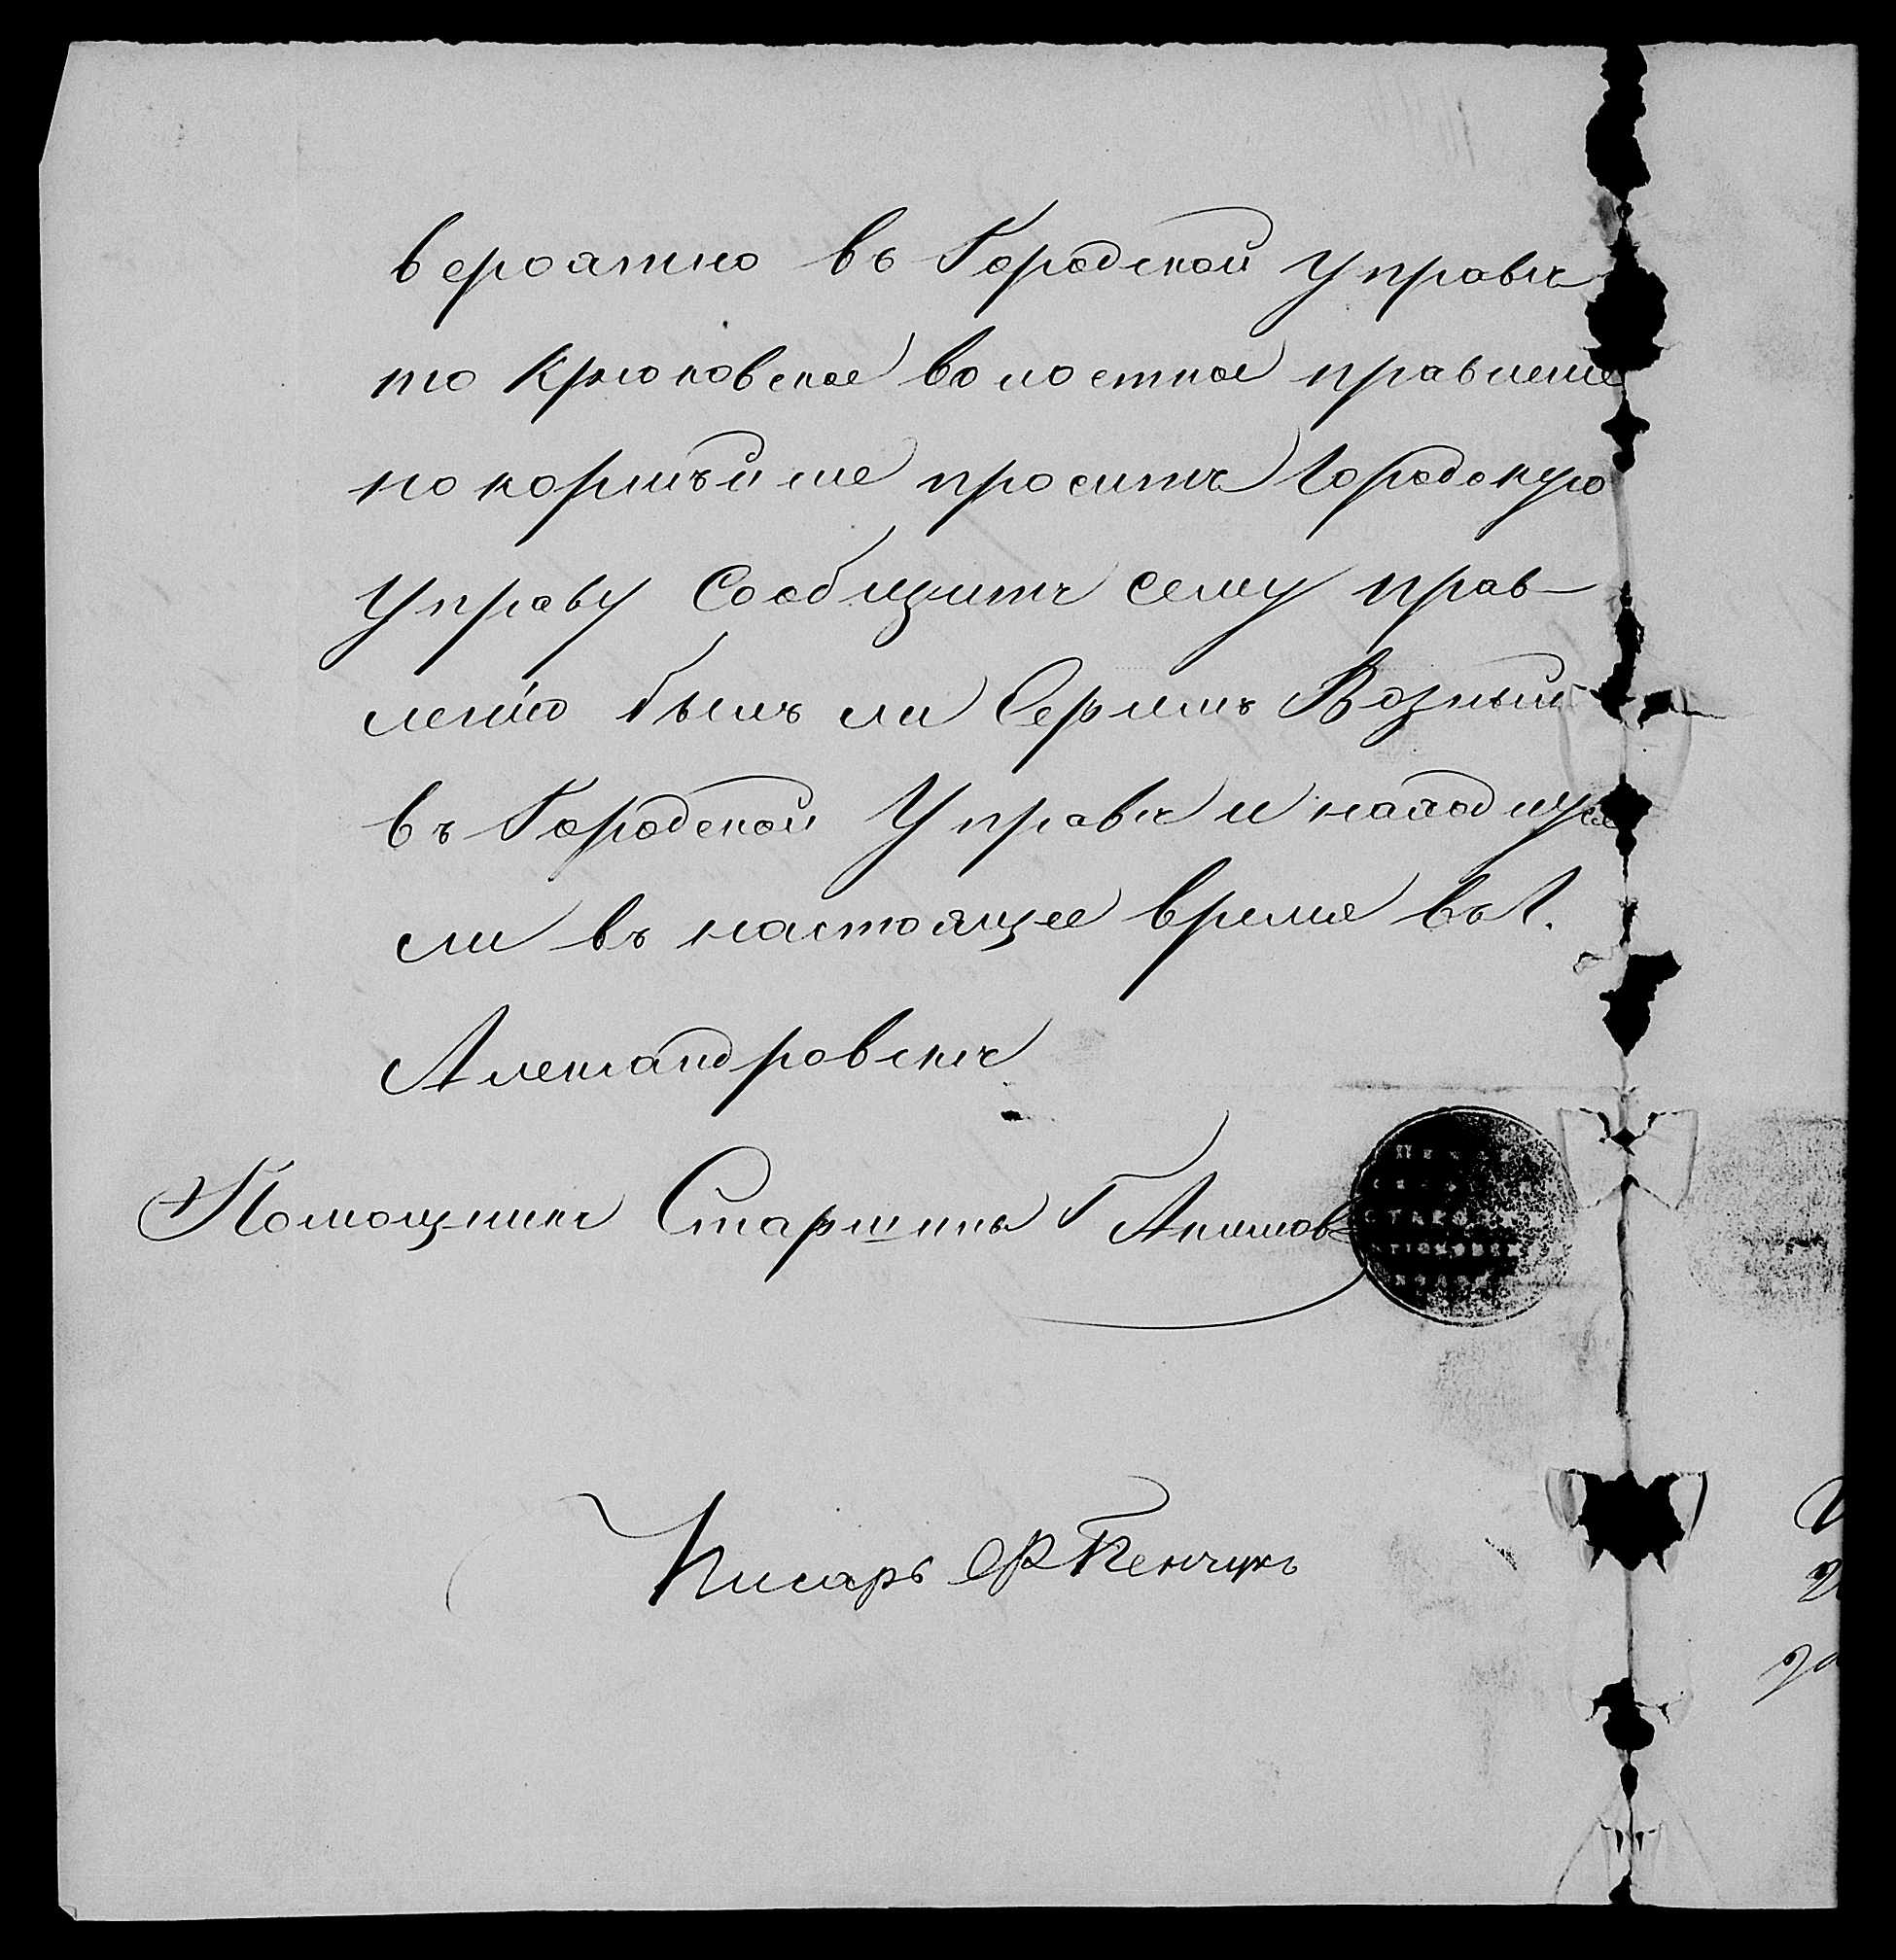 вероятно въ Городской Управѣ
то Крюковское волостное правление
покорнѣйше проситъ Городскую
Управу сообщить сему прав-
лению былъ ли Сергѣй Возный
въ Городской Управѣ и находился
ли въ настоящее время въ г.
Александровскѣ
Помощникъ Старшины Г Акимов
Писарь Ф Пенчукъ